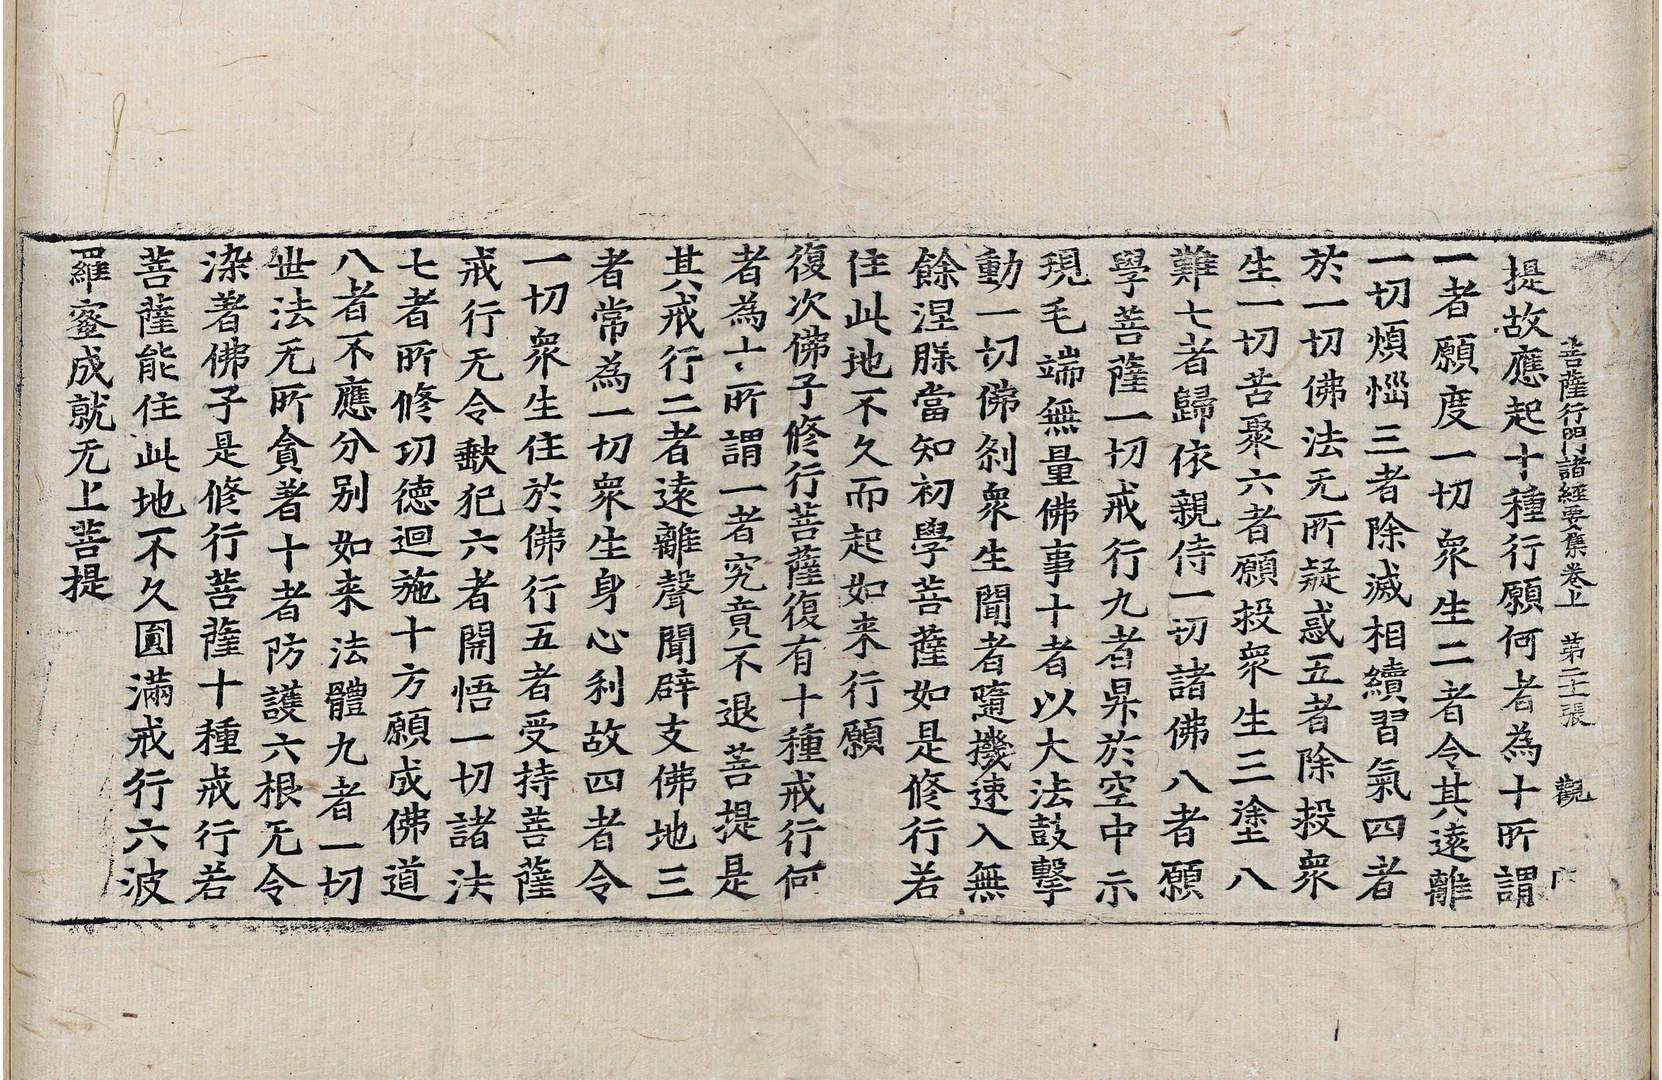 菩薩行門諸經要集卷上 第二十張 觀
提故應起十種行願何者為十所謂
一者願度一切衆生二者令其遠離
一切煩惱三者除滅相續習氣四者
於一切佛法无所疑惑五者除投衆
生一切苦聚六者願投衆生三塗八
難七者歸依親侍一切諸佛八者願
學菩薩一切戒行九者昇於空中示
現毛端無量佛事十者以大法鼓擊
動一切佛剎衆生聞者隨機速入無
餘涅脖當知初學菩薩如是修行若
住此地不久而起如来行願
復次佛子修行菩薩復有十種戒行何
者為十所謂一者究竟不退菩提是
其戒行二者遠離聲聞辟支佛地三
者常為一切衆生身心利故四者令
一切衆生住於佛行五者受持菩薩
戒行无令虧犯六者開悟一切諸法
七者所修功德迴施十方願成佛道
八者不應分別如来法體九者一切
世法无所貪著十者防護六根无令
染著佛子是修行菩薩十種戒行若
菩薩能住此地不久圓滿戒行六波
羅蜜成就无上菩提